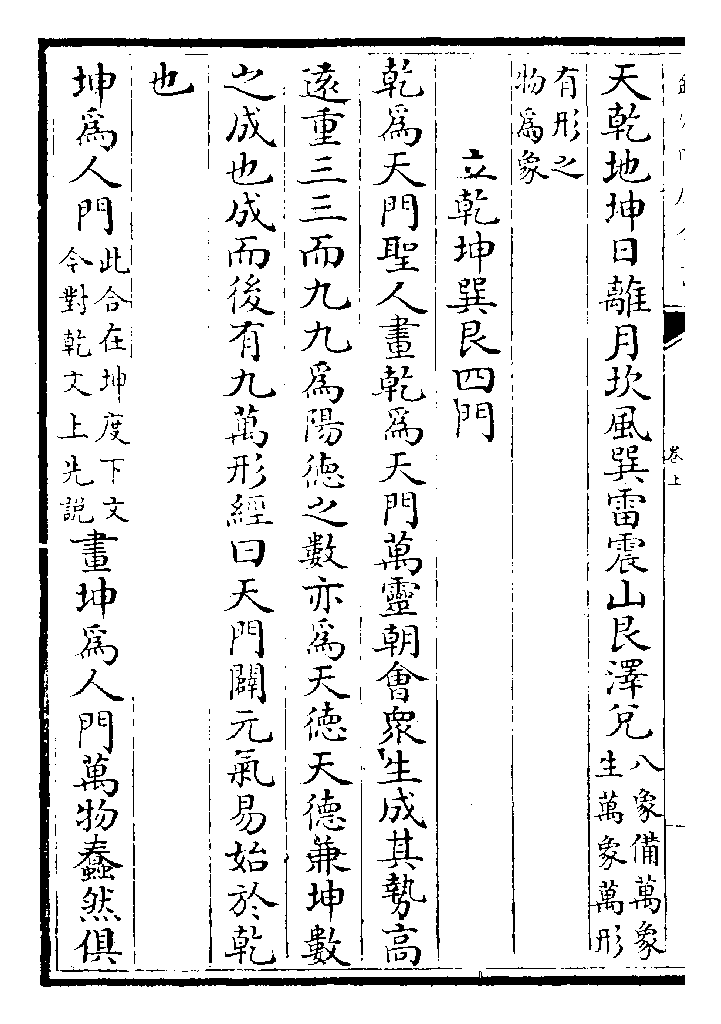 卷上
天乾地坤日離月坎風巽雷震山艮澤兌八象備萬象生萬象萬形
有形之物為象
立乾坤巽艮四門
乾為天門聖人畫乾為天門萬靈朝會衆生成其勢高
遠重三三而九九為陽德之數亦為天德天德兼坤數
之成也成而後有九萬形經曰天門闢元氣易始於乾
也
坤為人門此合在坤度下文今對乾文上先說畫坤為人門萬物蠢然俱